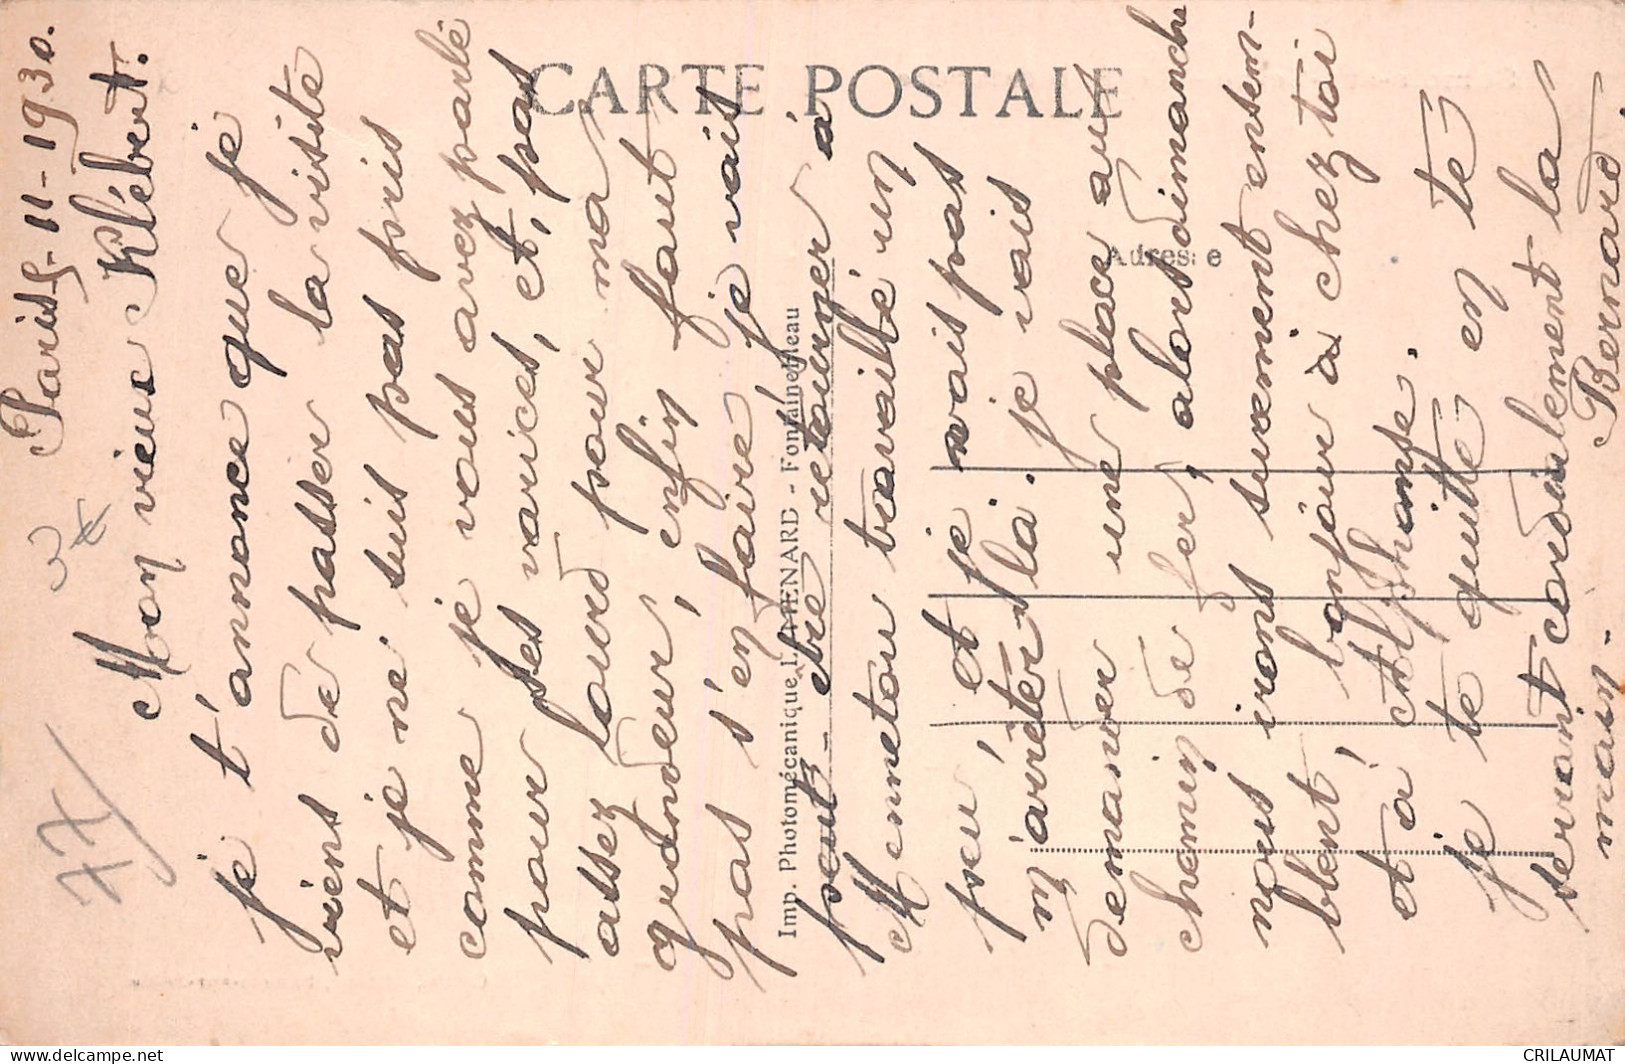 CARTE POSTALE
Adresse
Imp. Photomécanique L. MENARD - Fontainebleau
77
Paris 11-1930.
Mon vieux Klébert.
je t'annonce que je
viens de passer la visite
et je ne suis pas pris
comme je vous avez parlé
pour ses varices, et, pas
assez lourd pour ma
grandeur, enfin faut
pas s'en faire, je vais
peut-être retourner à
Menetou travaillé un
peu, et je vais pas
m'arrêter là. je vais
demander une place aux
chemin de fer, alors dimanche
nous irons surement ensem-
blent, bonjour à chez toi
et à Alphonse.
je te quitte en te
serrant cordialement la
main. Bernard.
CRILAUMAT